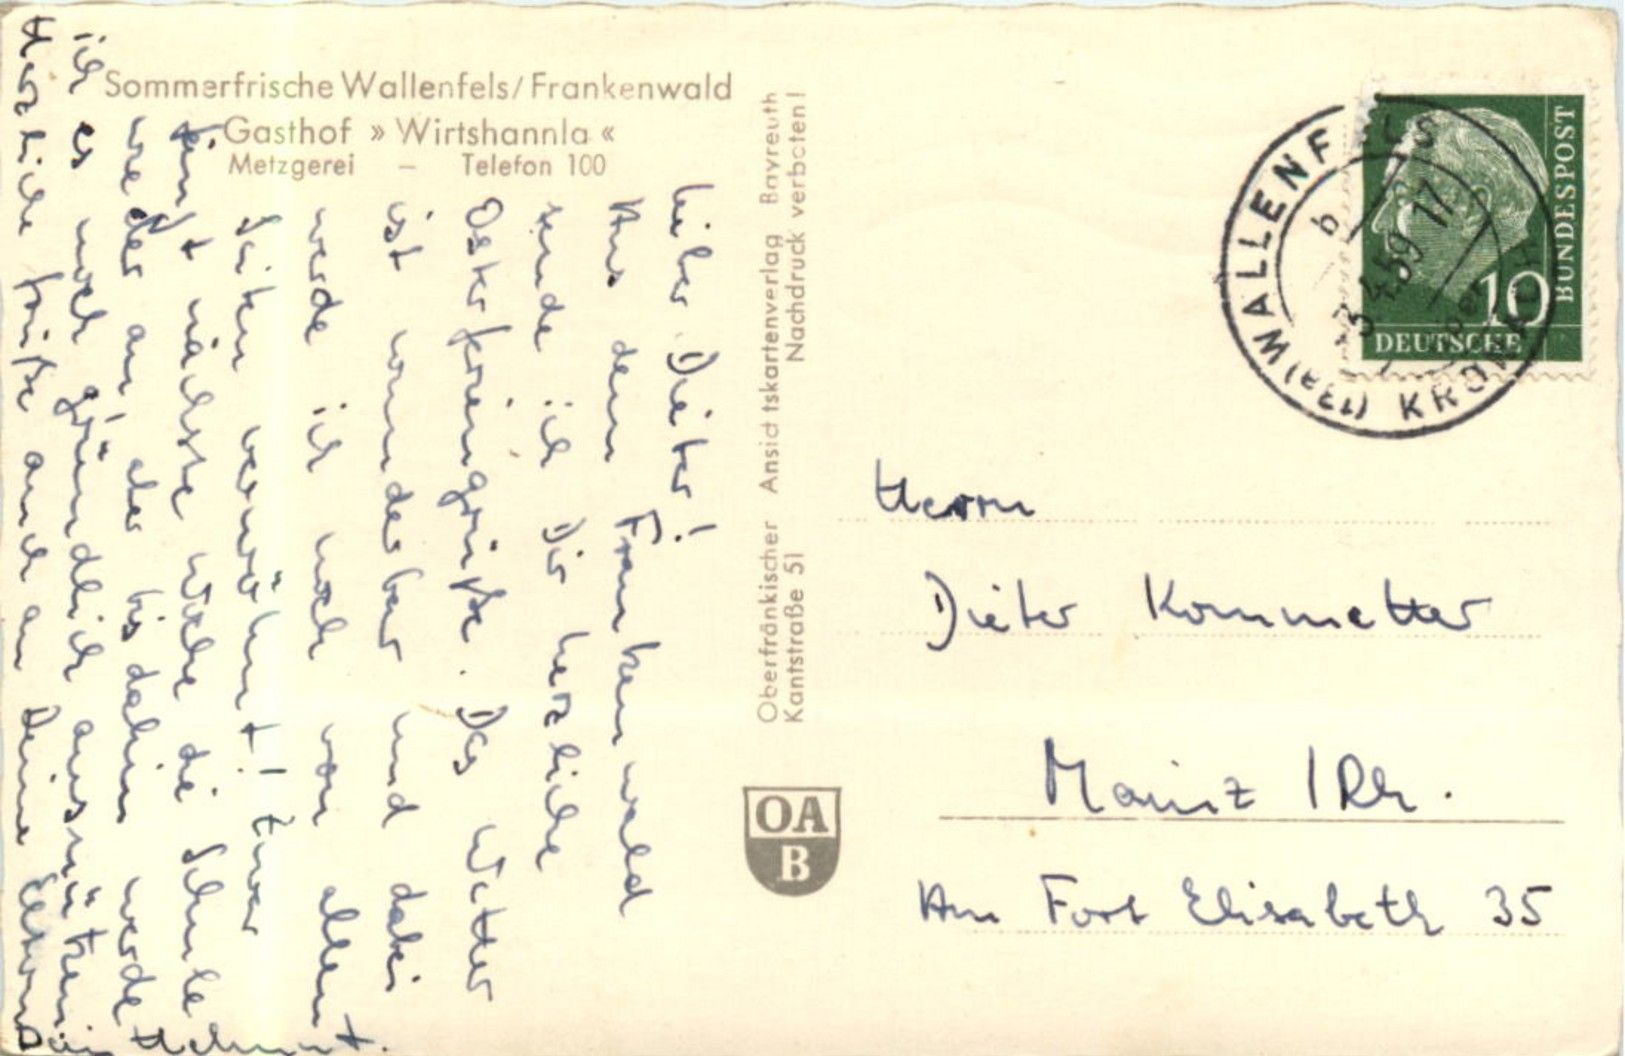 Sommerfrische Wallenfels/Frankenwald
Gasthof » Wirtshannla «
Metzgerei – Telefon 100
Lieber Dieter!
Aus dem Frankenwald
sende ich Dir herzliche
Osterferiengrüße. Das Wetter
ist wunderbar und dabei
werde ich noch von allen
Seiten verwöhnt! Zwar
fängt nächste Woche die Schule
wieder an, aber bis dahin werde
ich es noch gründlich ausnützen.
Herzliche Grüße auch an Deine Eltern
Dein Helmut.
Oberfränkischer Ansichtskartenverlag Bayreuth
Kantstraße 51 Nachdruck verboten!
OA
B
(13a) WALLENFELS
b
-3.4.59 17
KRONACH
BUNDESPOST
10
DEUTSCHE
Herrn
Dieter Kommetter
Mainz / Rh.
Am Fort Elisabeth 35